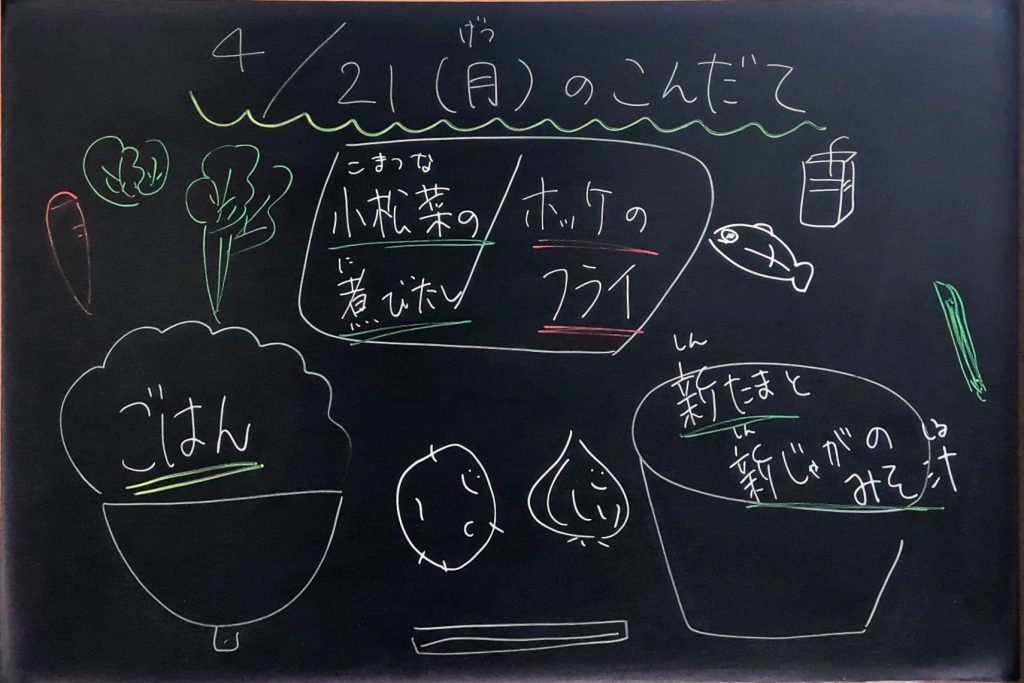 げつ
4/21(月)のこんだて
こまつな
小松菜の
に
煮びたし
ホッケの
フライ
ごはん
しん
新たまと
しん
新じゃがの
みそ汁
しる